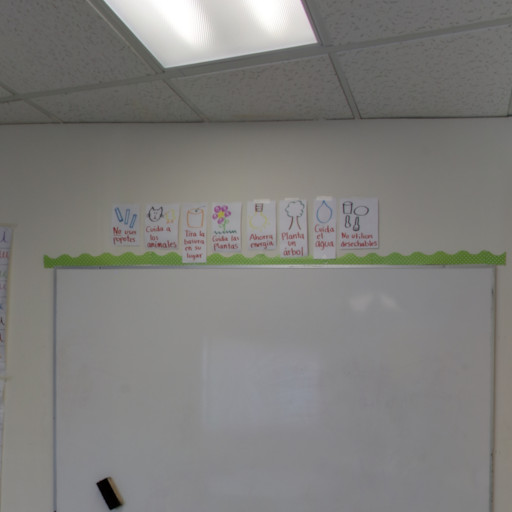 No usar
popotes
Cuida a
los
animales
Tira la
basura
en su
lugar
Cuida las
plantas
Ahorra
energía
Planta
un
árbol
Cuida
el
agua
No utilizar
desechables